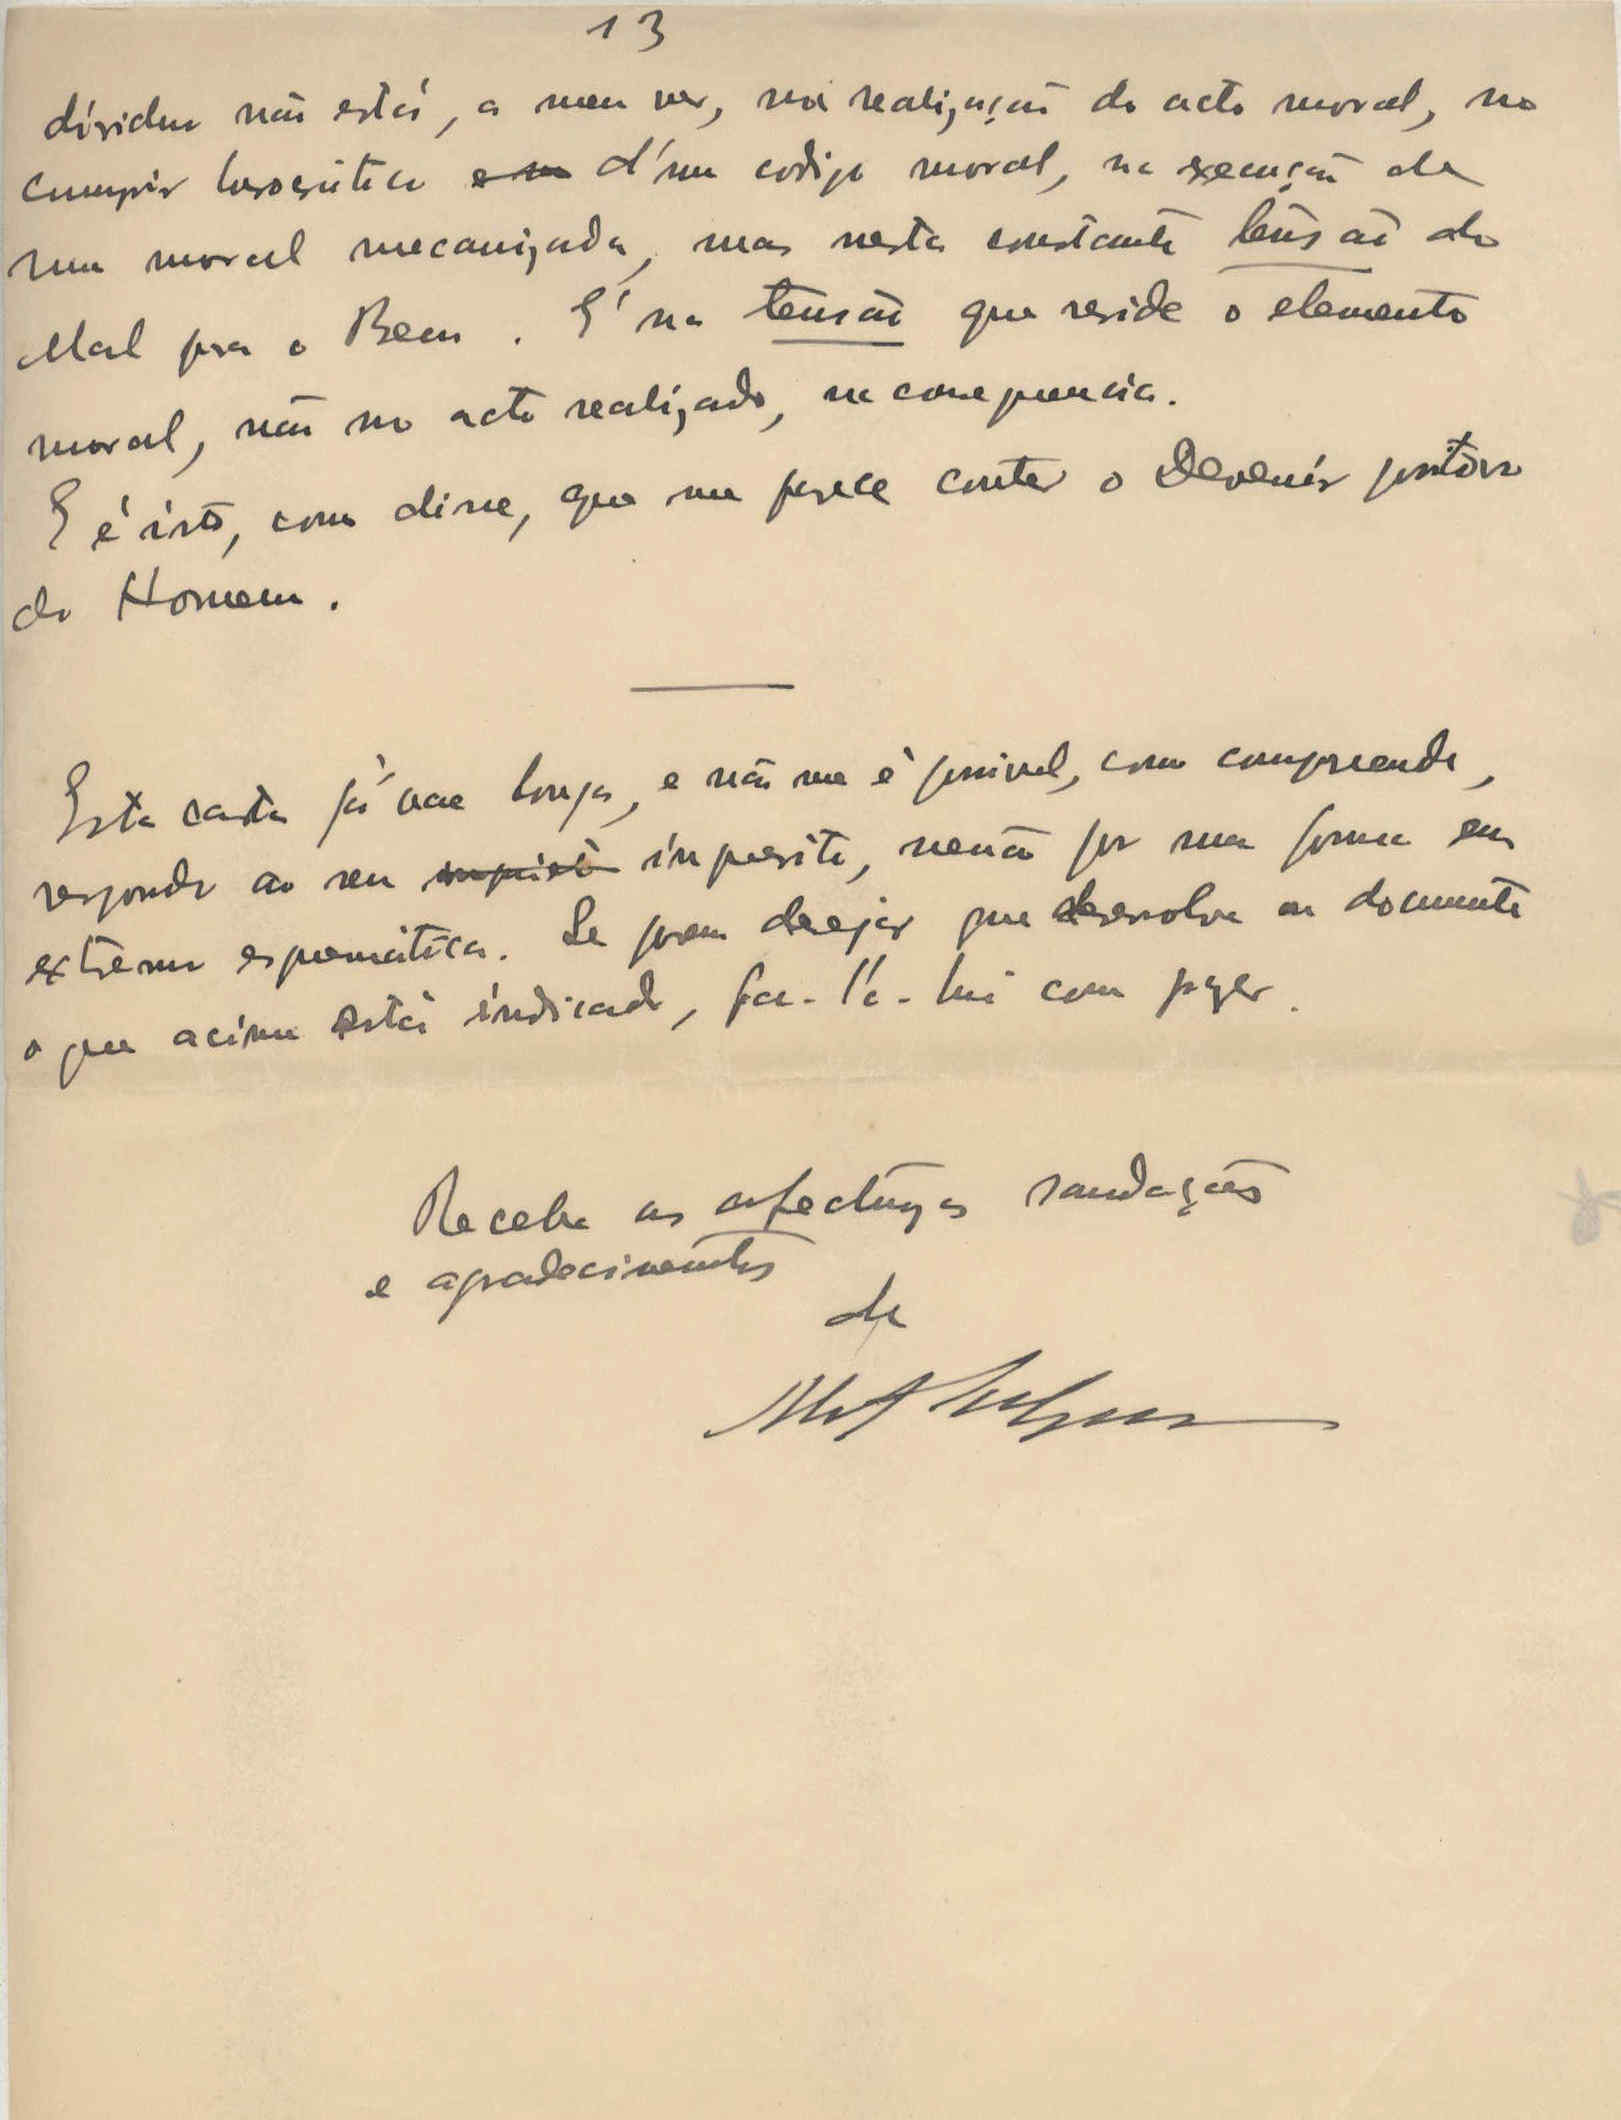 13
dividuo não está, a meu ver, na realização do acto moral, no
cumprir burocrático d'um codigo moral, na execução de
uma moral mecanizada, mas nesta constante tensão do
Mal para o Bem. É na tensão que reside o elemento
moral, não no acto realizado, na consequencia.
E é isto, como disse, que me parece conter o Devenir
do Homem.
Esta carta já vae longa, e não me é possivel, como comprehende,
responder ao seu inquerito, senão por uma forma em
extremo esquematica. Se porem desejar que desenvolva ou documente
o que acima está indicado, fa-l'o-hei com prazer.
Receba as afectuosas saudações
e agradecimentos
de